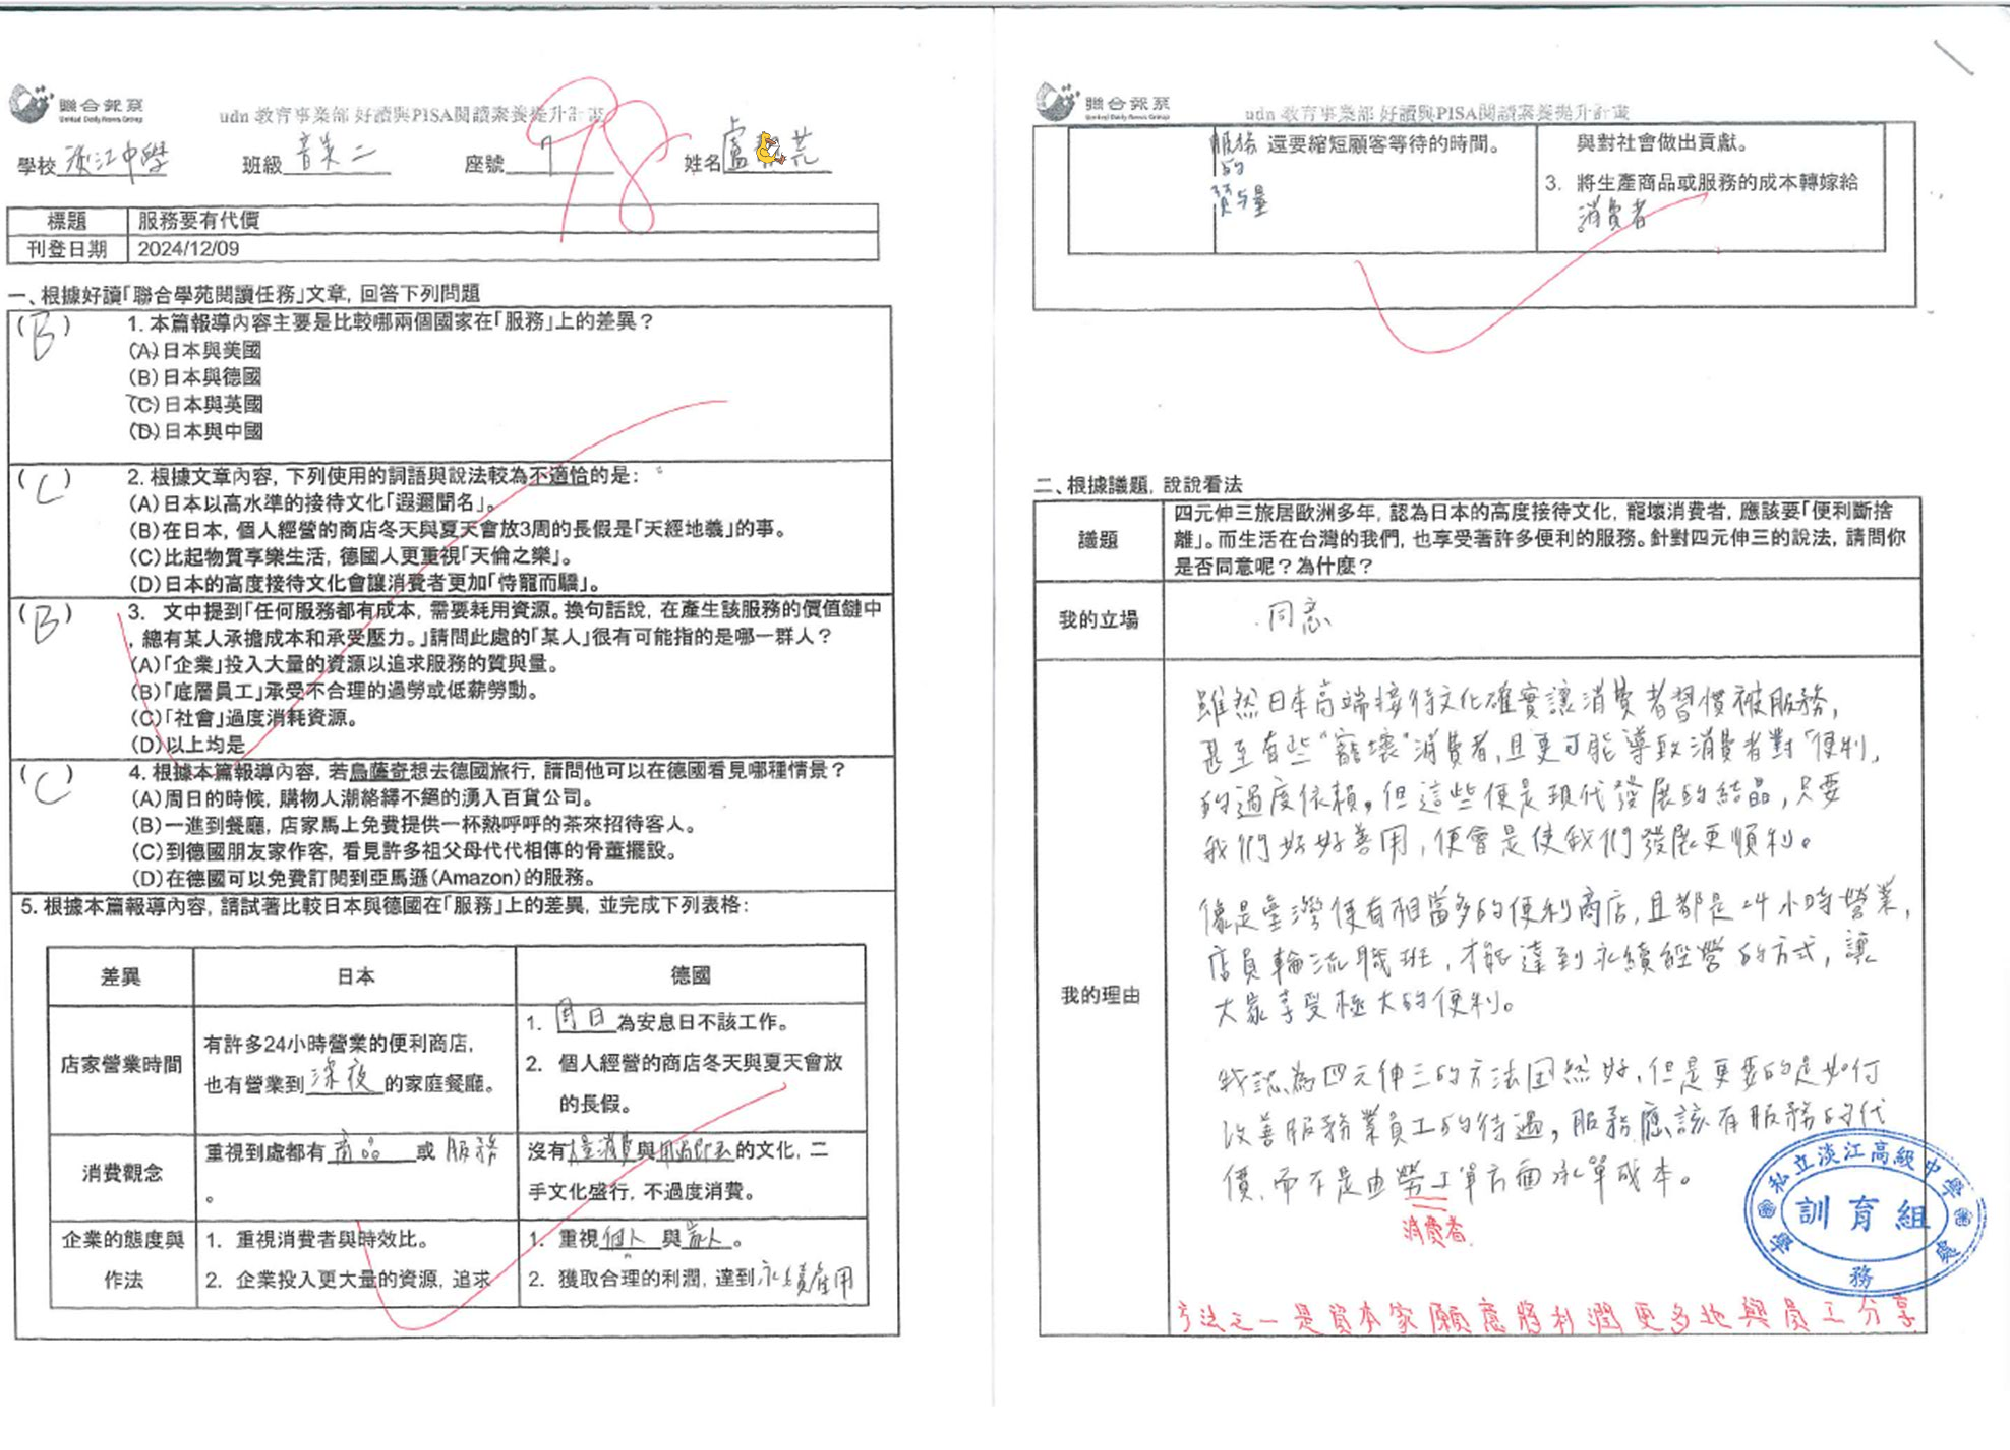 聯合報系
United Daily News Group
udn 教育事業部 好讀與PISA閱讀素養提升計畫
98
學校 淡江中學 班級 音樂二 座號 7 姓名 盧
標題 服務要有代價
刊登日期 2024/12/09
一、根據好讀「聯合學苑閱讀任務」文章，回答下列問題
(B) 1. 本篇報導內容主要是比較哪兩個國家在「服務」上的差異？
(A)日本與美國
(B)日本與德國
(C)日本與英國
(D)日本與中國
(C) 2. 根據文章內容，下列使用的詞語與說法較為不適恰的是：
(A)日本以高水準的接待文化「遐邇聞名」。
(B)在日本，個人經營的商店冬天與夏天會放3周的長假是「天經地義」的事。
(C)比起物質享樂生活，德國人更重視「天倫之樂」。
(D)日本的高度接待文化會讓消費者更加「恃寵而驕」。
(B) 3. 文中提到「任何服務都有成本，需要耗用資源。換句話說，在產生該服務的價值鏈中
，總有某人承擔成本和承受壓力。」請問此處的「某人」很有可能指的是哪一群人？
(A)「企業」投入大量的資源以追求服務的質與量。
(B)「底層員工」承受不合理的過勞或低薪勞動。
(C)「社會」過度消耗資源。
(D)以上均是
(C) 4. 根據本篇報導內容，若烏薩奇想去德國旅行，請問他可以在德國看見哪種情景？
(A)周日的時候，購物人潮絡繹不絕的湧入百貨公司。
(B)一進到餐廳，店家馬上免費提供一杯熱呼呼的茶來招待客人。
(C)到德國朋友家作客，看見許多祖父母代代相傳的骨董擺設。
(D)在德國可以免費訂閱到亞馬遜(Amazon)的服務。
5. 根據本篇報導內容，請試著比較日本與德國在「服務」上的差異，並完成下列表格：
差異 日本 德國
店家營業時間
有許多24小時營業的便利商店，
也有營業到深夜的家庭餐廳。
1. 周日為安息日不該工作。
2. 個人經營的商店冬天與夏天會放
的長假。
消費觀念
重視到處都有商品或服務
。
沒有大量消費與用過即丟的文化，二
手文化盛行，不過度消費。
企業的態度與
作法
1. 重視消費者與時效比。
2. 企業投入更大量的資源，追求
1. 重視個人與家人。
2. 獲取合理的利潤，達到永續雇用
聯合報系
United Daily News Group
udn 教育事業部 好讀與PISA閱讀素養提升計畫
服務的質與量 還要縮短顧客等待的時間。
與對社會做出貢獻。
3. 將生產商品或服務的成本轉嫁給
消費者。
二、根據議題，說說看法
議題
四元伸三旅居歐洲多年，認為日本的高度接待文化，寵壞消費者，應該要「便利斷捨
離」。而生活在台灣的我們，也享受著許多便利的服務。針對四元伸三的說法，請問你
是否同意呢？為什麼？
我的立場 同意
我的理由
雖然日本高端接待文化確實讓消費者習慣被服務，
甚至有些"寵壞"消費者，且更可能導致消費者對「便利」
的過度依賴。但這些便是現代發展的結晶，只要
我們好好善用，便會是使我們發展更順利。
像是臺灣便有相當多的便利商店，且都是24小時營業，
店員輪流職班，才能達到永續經營的方式，讓
大家享受極大的便利。
我認為四元伸三的方法固然好，但是更要的是如何
改善服務業員工的待遇，服務應該有服務的代
價，而不是由勞工單方面承單成本。
消費者
方法之一是資本家願意將利潤更多地與員工分享
私立淡江高級中學
訓育組
學務處